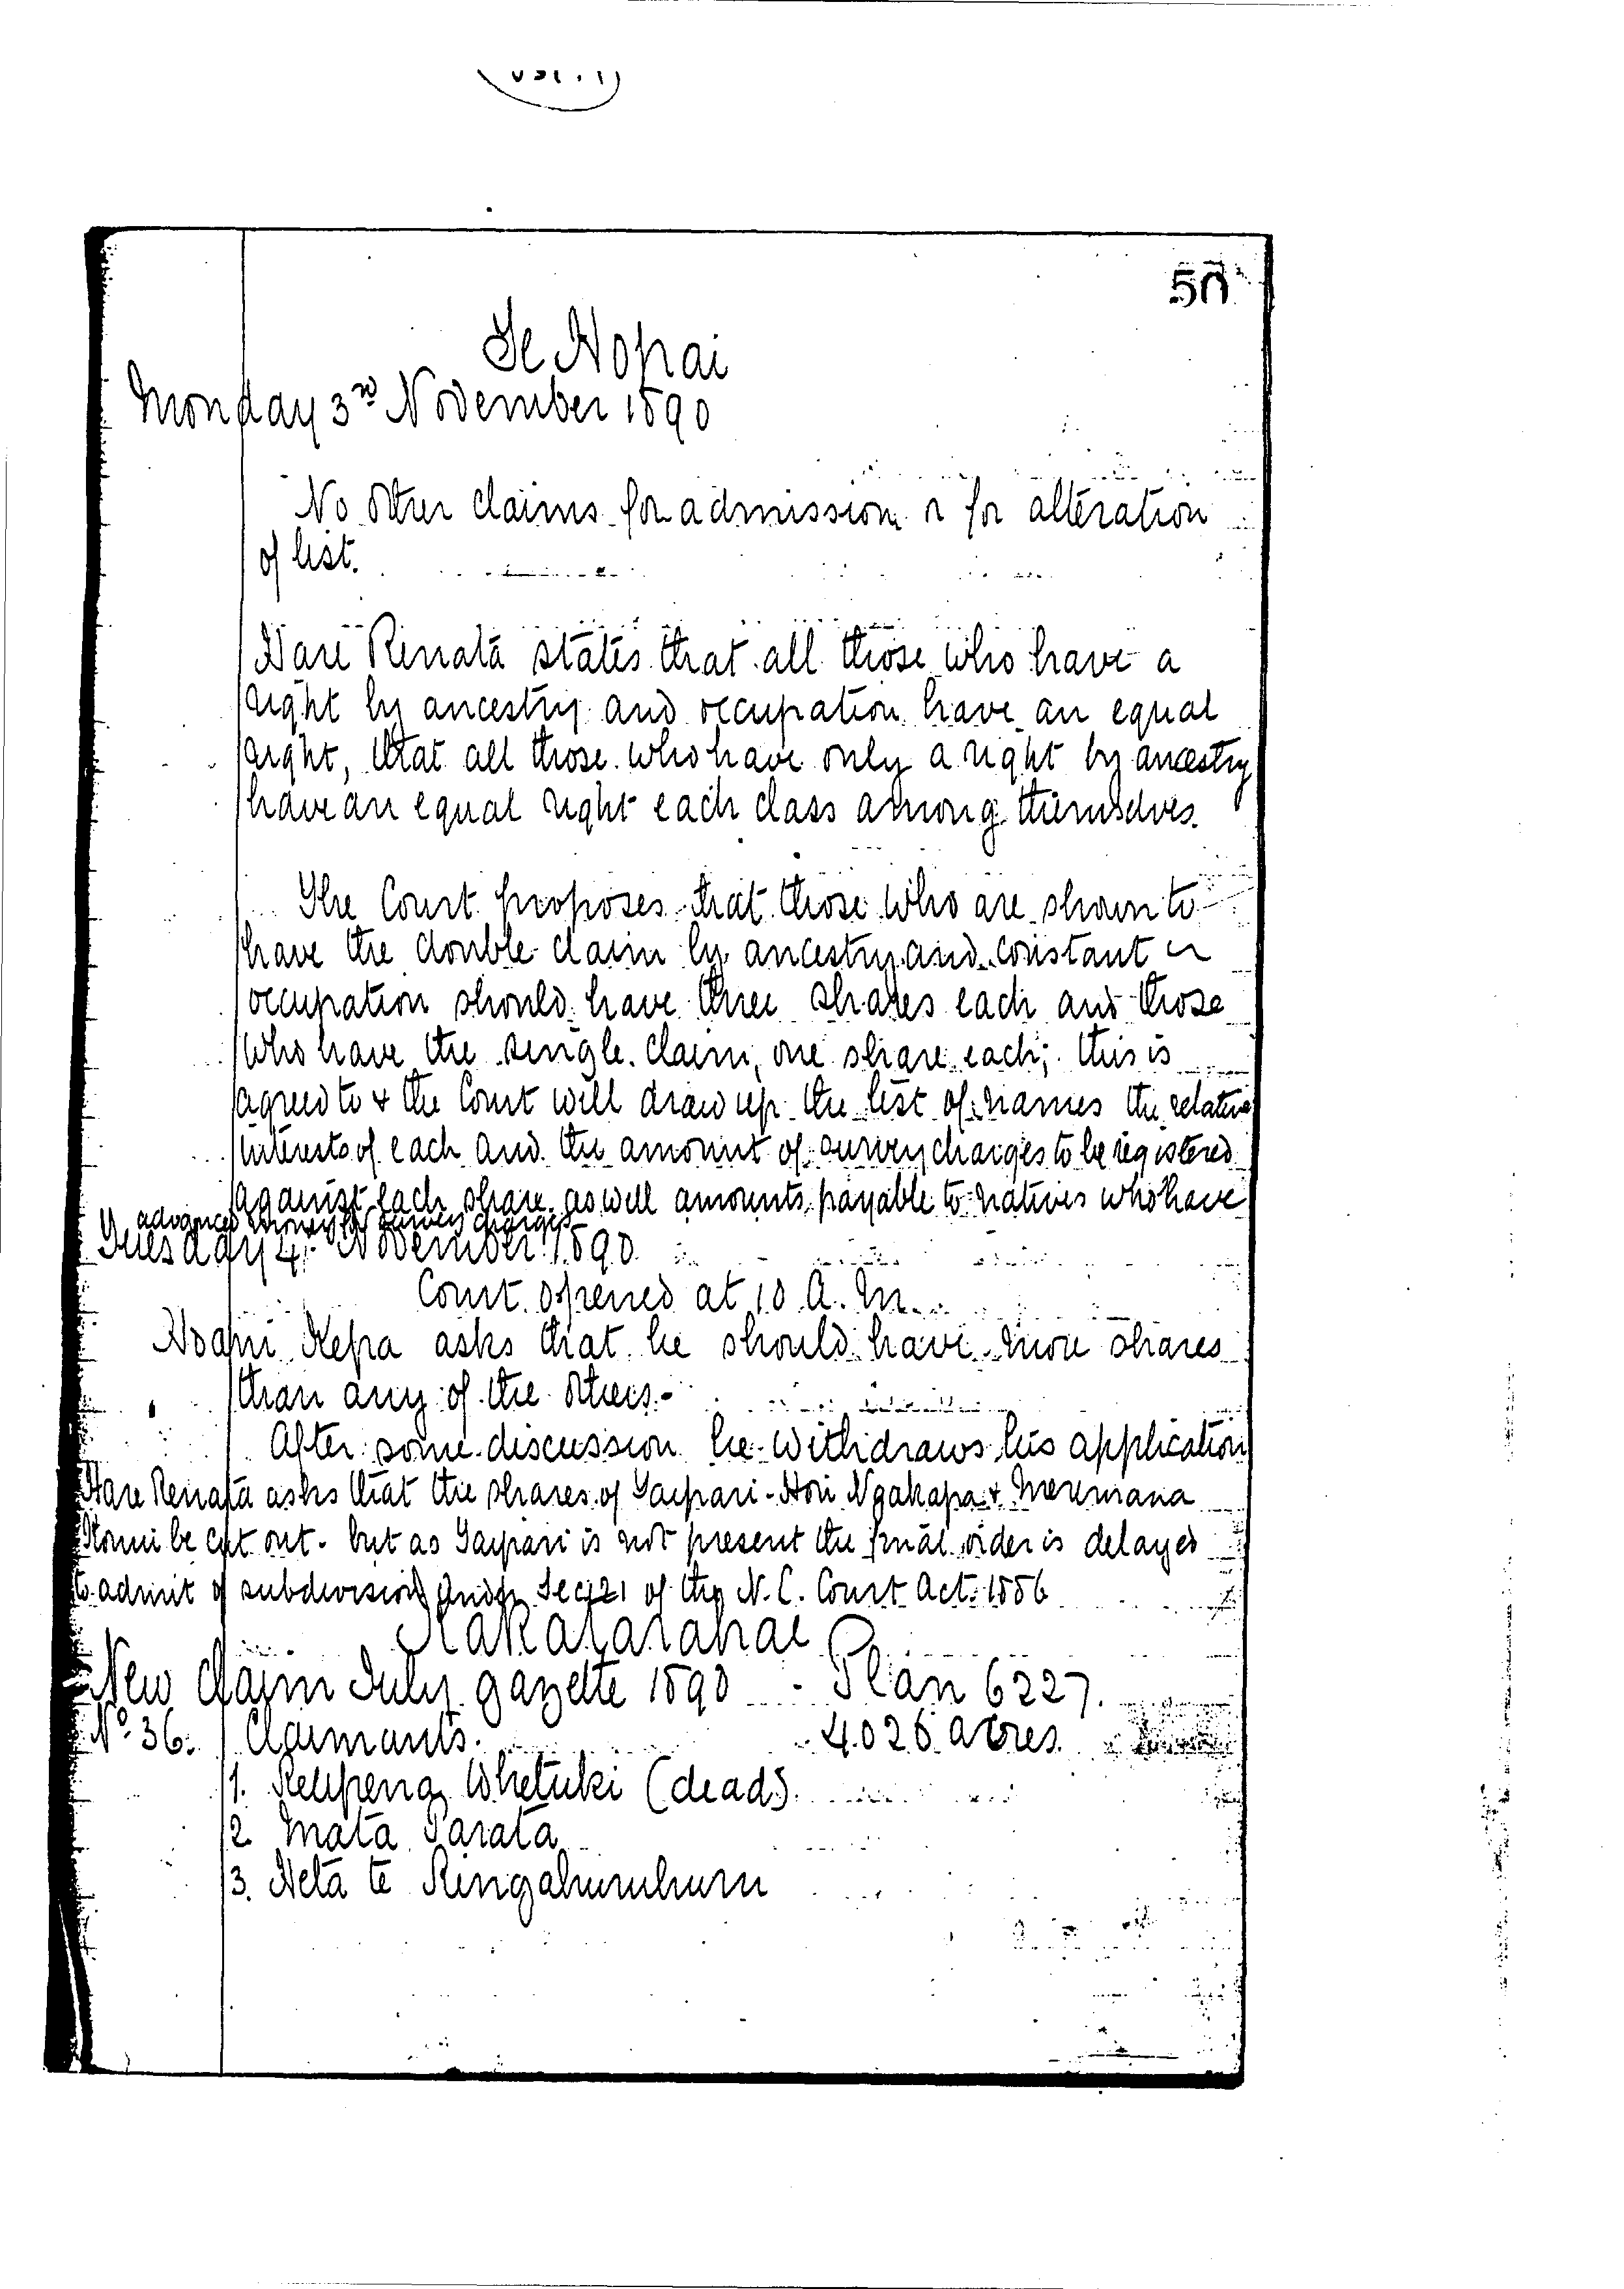 50
Te Hopai
Monday 3rd November 1890
No other claims for admission or for alteration
of list.
Hare Renata states that all those who have a
right by ancestry and occupation have an equal
right, that all those who have only a right by ancestry
have an equal right each class among themselves.
The Court proposes that those who are shown to
have the double claim by ancestry and constant
occupation should have three shares each and those
who have the single claim, one share each; this is
agreed to & the Court will draw up the list of names the relative
interests of each and the amount of survey charges to be registered
against each share as well amounts payable to natives who have
advanced money for survey charges
Tuesday 4. November 1890
Court opened at 10 A. M.
Hoani Kepa asks that he should have more shares
than any of the others.-
After some discussion he withdraws his application
Hare Renata asks that the shares of - Hori Ngakapa &
be cut out. but as is not present the final order is delayed
to admit of subdivision under Sec 21 of the N. L. Court Act. 1886
New Claim July gazette 1890 - Plan 6227.
No. 36. Claimants. 4026 acres
1. Whetuki (dead).
2. Mata Parata
3. Heta te Ringahuruhuru